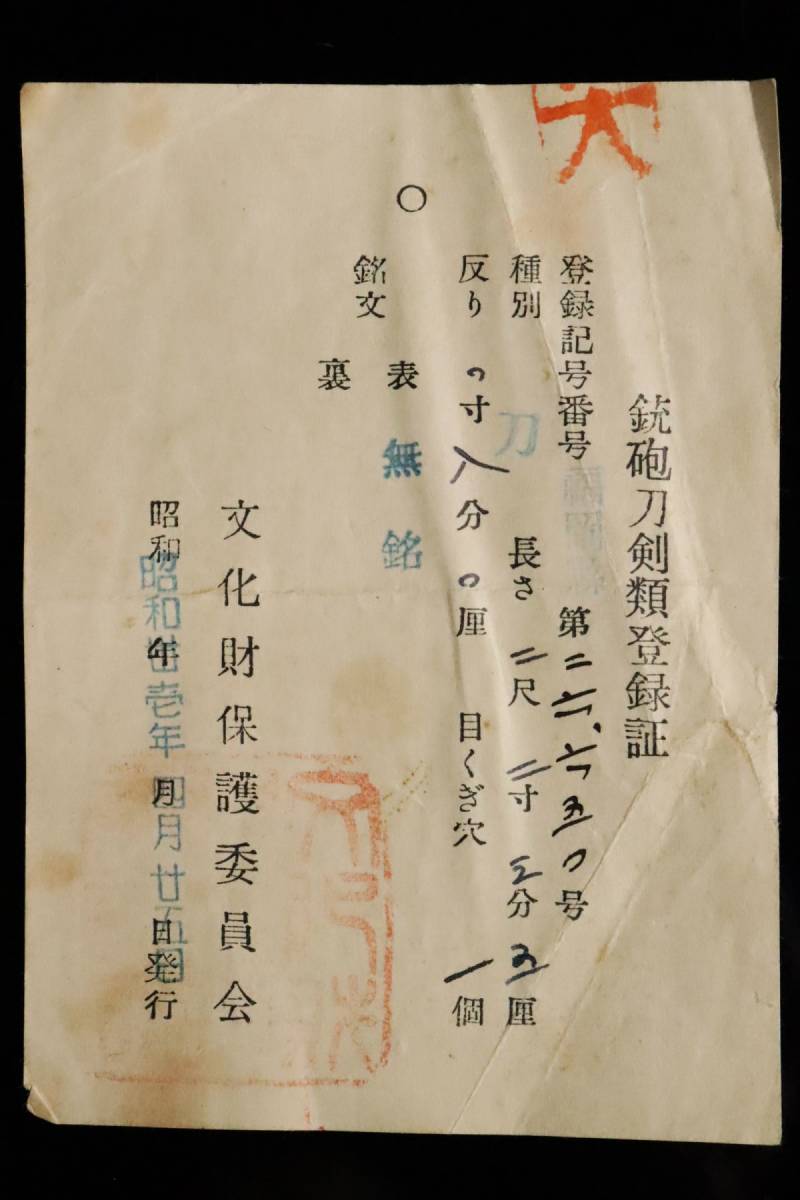 銃砲刀剣類登録証
登録記号番号 第二六、六五〇号
種別 刀 長さ 二尺 二寸 三分 五厘
反り 〇寸 八分 〇厘 目くぎ穴 一個
銘文
表 無銘
裏
文化財保護委員会
昭和 年 月 日発行
昭和卅壱年四月廿五日